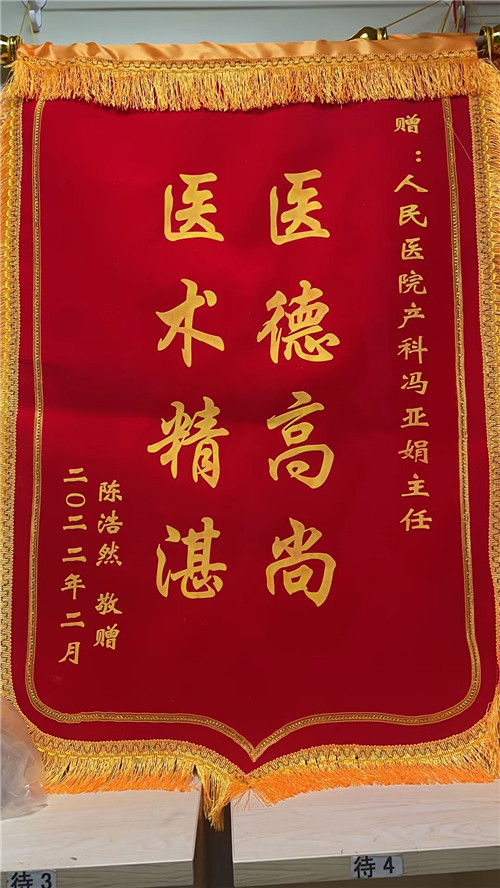 赠：人民医院产科冯亚娟主任
医德高尚
医术精湛
陈浩然 敬赠
二〇二二年二月
待3
待4